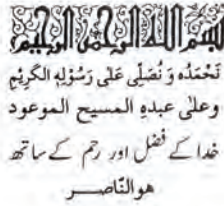 بسم الله الرحمن الرحيم
نَحْمَدُہ وَ نُصَلِّی عَلٰی رَسُوْلِهِ الْکَرِیْمِ
وعلىٰ عبدہِ المسیح الموعود
خدا کے فضل اور رحم کے ساتھ
ھوالنّاصــر